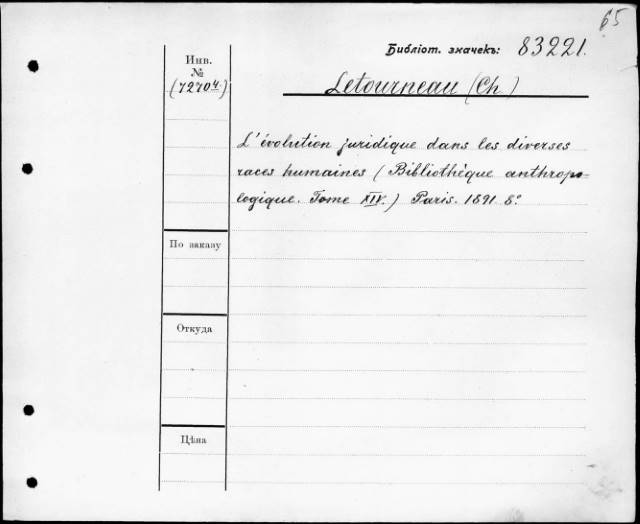 65
Библіот. значекъ: 83221.
Инв.
№
(72704.)
Letourneau (Ch.)
L'évolution juridique dans les diverses
races humaines (Bibliothèque anthropo-
logique. Tome XIV.) Paris. 1891. 8º
По заказу
Откуда
Цѣна